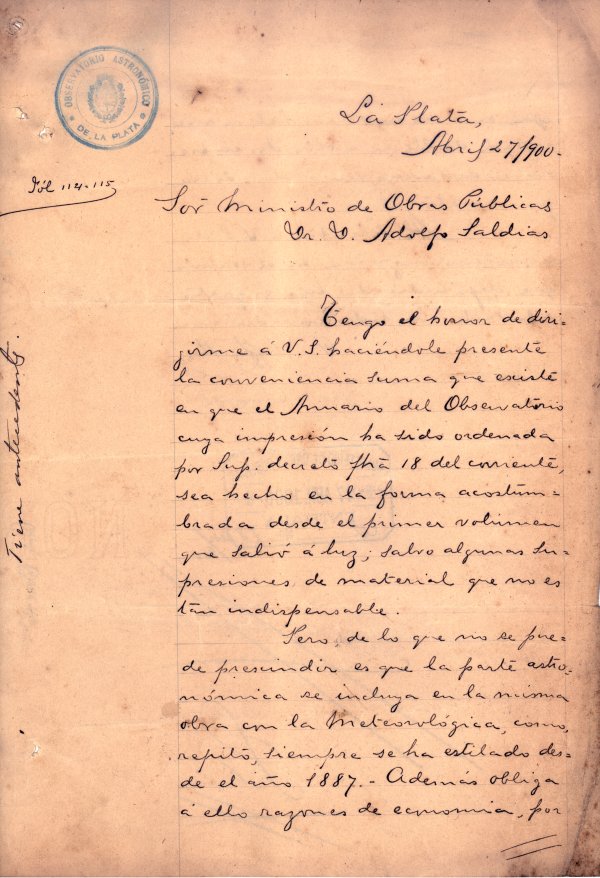 OBSERVATORIO ASTRONÓMICO
DE LA PLATA
La Plata,
Abril 27/900.
Fól 114-115
Sor Ministro de Obras Públicas
Dr. D. Adolfo Saldias
Tengo el honor de diri-
girme á V.S. haciéndole presente
la conveniencia suma que existe
en que el Anuario del Observatorio
cuya impresión ha sido ordenada
por Sup. decreto fha 18 del corriente,
sea hecho en la forma acostum-
brada desde el primer volumen
que salió á luz; salvo algunas su-
presiones de material que no es
tan indispensable.
Pero, de lo que no se pue-
de prescindir es que la parte astro-
nómica se incluya en la misma
obra con la Meteorológica, como,
repito, siempre se ha estilado des-
de el año 1887.- Además obliga
á ello razones de economia, por
Tiene antecedents.